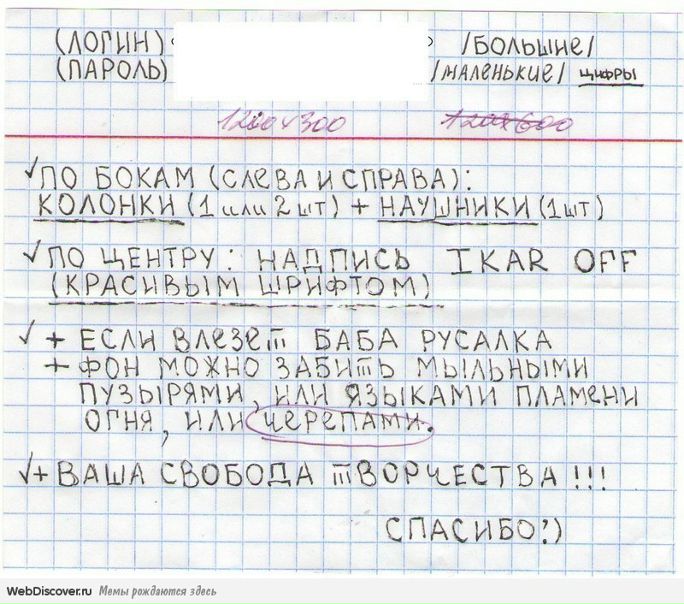 (ЛОГИН) /БОЛЬШИЕ/
(ПАРОЛЬ) /МАЛЕНЬКИЕ/ ЦИФРЫ
1200x300 1200x600
✓ ПО БОКАМ (СЛЕВА И СПРАВА):
КОЛОНКИ (1 или 2 шт) + НАУШНИКИ (1 шт)
✓ ПО ЦЕНТРУ: НАДПИСЬ IKAR OFF
(КРАСИВЫМ ШРИФТОМ)
✓ + ЕСЛИ ВЛЕЗЕТ БАБА РУСАЛКА
+ ФОН МОЖНО ЗАБИТЬ МЫЛЬНЫМИ
ПУЗЫРЯМИ, ИЛИ ЯЗЫКАМИ ПЛАМЕНИ
ОГНЯ, ИЛИ ЧЕРЕПАМИ.
✓+ ВАША СВОБОДА ТВОРЧЕСТВА !!!
СПАСИБО:)
WebDiscover.ru Мемы рождаются здесь